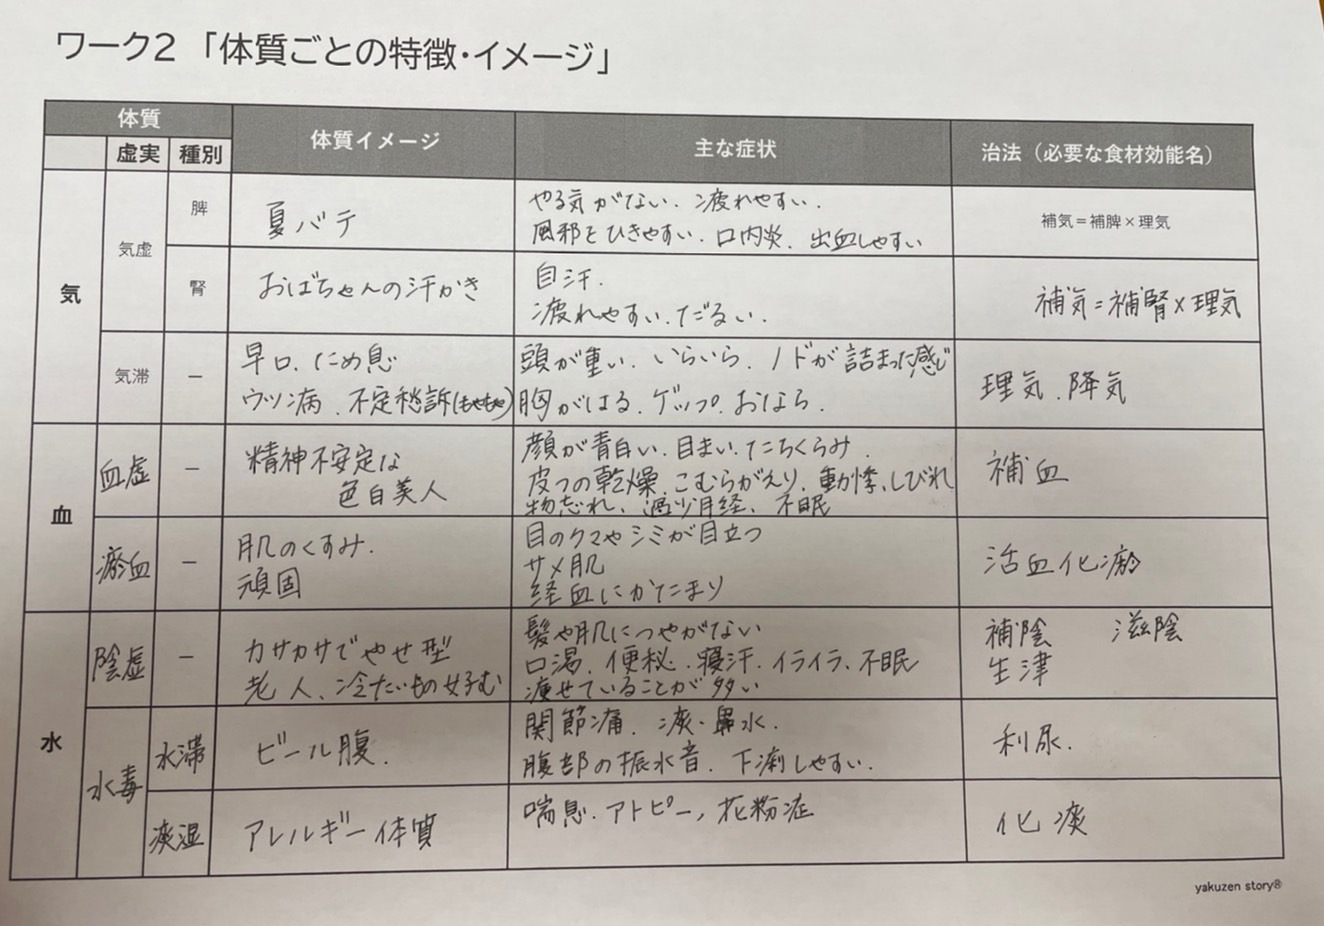 ワーク2 「体質ごとの特徴・イメージ」
体質
体質イメージ
主な症状
治法（必要な食材効能名）
虚実
種別
気
気虚
脾
夏バテ
やる気がない、疲れやすい、
風邪をひきやすい、口内炎、出血しやすい
補気＝補脾×理気
腎
おばちゃんの汗かき
自汗、
疲れやすい、だるい、
補気＝補腎×理気
気滞
–
早口、ため息
ウツ病、不定愁訴(もやもや)
頭が重い、いらいら、ノドが詰まった感じ
胸がはる、ゲップ、おなら、
理気、降気
血
血虚
–
精神不安定な
色白美人
顔が青白い、目まい、たちくらみ、
皮フの乾燥、こむらがえり、動悸、しびれ
物忘れ、過少月経、不眠
補血
瘀血
–
肌のくすみ、
頑固
目のクマやシミが目立つ
サメ肌
経血にかたまり
活血化瘀
水
陰虚
–
カサカサでやせ型
老人、冷たいもの好む
髪や肌につやがない
口渇、便秘、寝汗、イライラ、不眠
痩せていることが多い
補陰 滋陰
生津
水毒
水滞
ビール腹、
関節痛、痰・鼻水、
腹部の振水音、下痢しやすい、
利尿、
痰湿
アレルギー体質
喘息、アトピー、花粉症
化痰
yakuzen story®